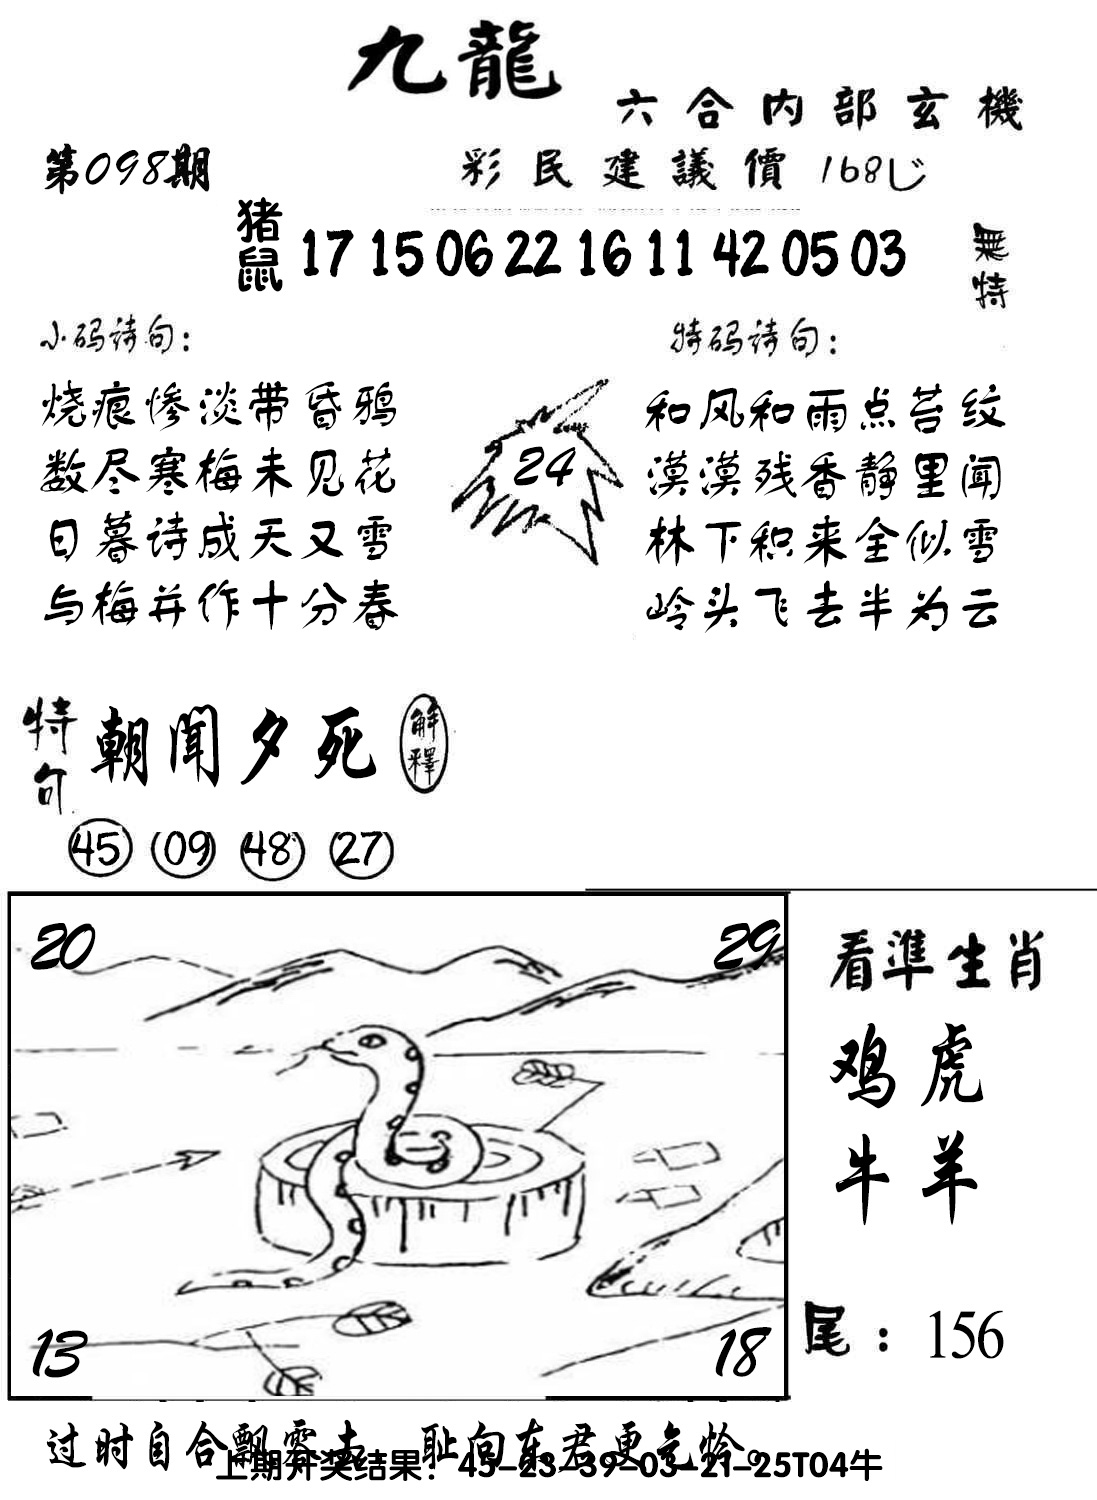 九龍
六合内部玄機
第098期
彩民建議價 168
猪鼠 17 15 06 22 16 11 42 05 03
無特
小码诗句：
烧痕惨淡带昏鸦
数尽寒梅未见花
日暮诗成天又雪
与梅并作十分春
24
特码诗句：
和风和雨点苔纹
漠漠残香静里闻
林下积来全似雪
岭头飞去半为云
特句 朝闻夕死 解釋
45 09 48 27
20 29
13 18
看準生肖
鸡虎
牛羊
尾：156
过时自合飘零去 耻向东君更乞怜。
上期开奖结果：45-23-39-03-21-25T04牛